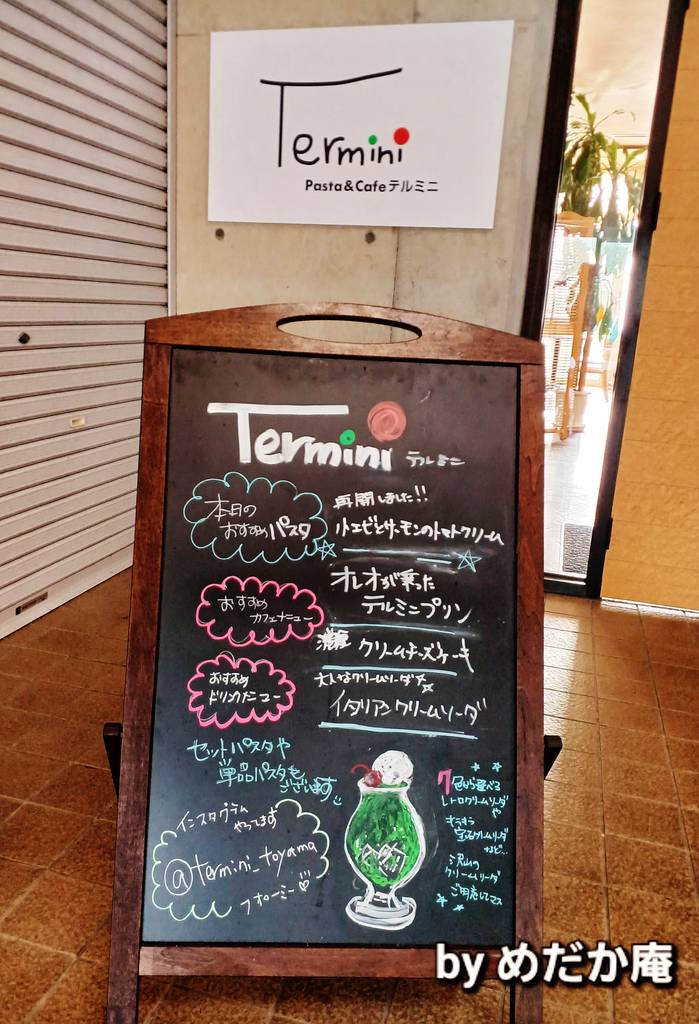 Termini
Pasta&Cafeテルミニ
Termini テルミニ
本日の
おすすめパスタ
再開しました!!
小エビとサーモンのトマトクリーム
おすすめ
カフェメニュー
オレオが乗った
テルミニプリン
濃厚 クリームチーズケーキ
おすすめ
ドリンクメニュー
大人なクリームソーダ
イタリアンクリームソーダ
セットパスタや
単品パスタも
ございます
インスタグラム
やってます
@termini_toyama
フォローミー
7色から選べる
レトロクリームソーダ
や
キラキラ
宝石クリームソーダ
など...
沢山の
クリームソーダ
ご用意してマス
by めだか庵